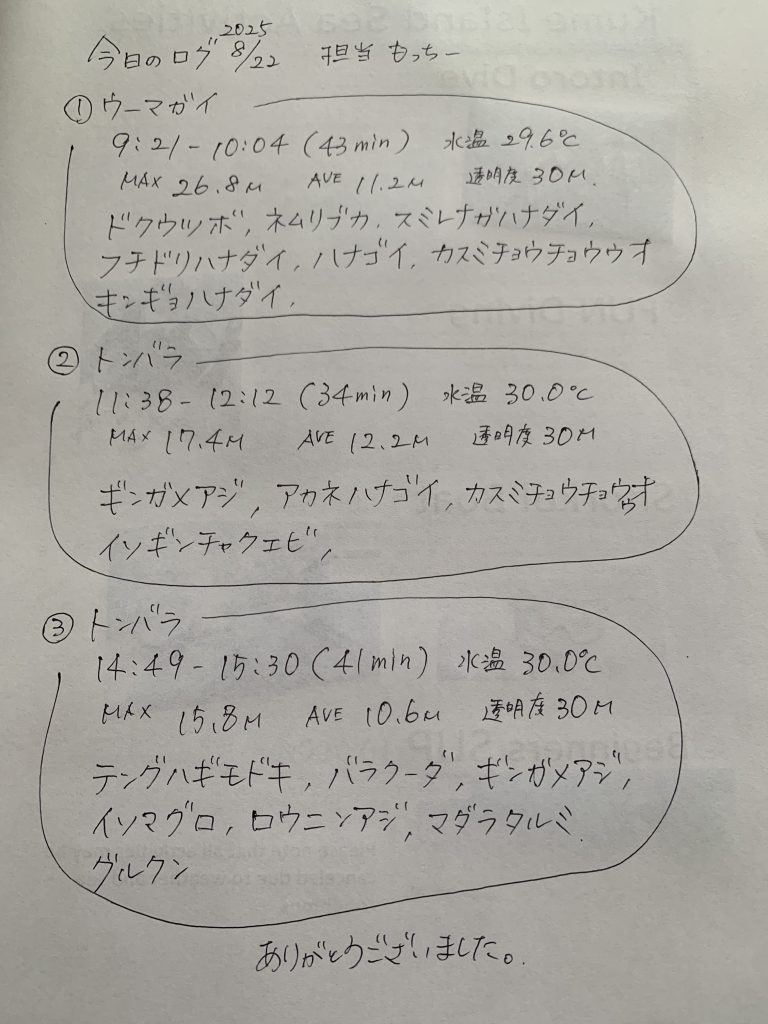 今日のログ 2025 8/22 担当 もっちー
① ウーマガイ
9:21 - 10:04 (43min) 水温 29.6℃
MAX 26.8M AVE 11.2M 透明度 30M.
ドクウツボ, ネムリブカ, スミレナガハナダイ,
フチドリハナダイ, ハナゴイ, カスミチョウチョウウオ
キンギョハナダイ,
② トンバラ
11:38 - 12:12 (34min) 水温 30.0℃
MAX 17.4M AVE 12.2M 透明度 30M
ギンガメアジ, アカネハナゴイ, カスミチョウチョウウオ
イソギンチャクエビ,
③ トンバラ
14:49 - 15:30 (41min) 水温 30.0℃
MAX 15.8M AVE 10.6M 透明度 30M
テングハギモドキ, バラクーダ, ギンガメアジ,
イソマグロ, ロウニンアジ, マダラタルミ
グルクン
ありがとうございました。